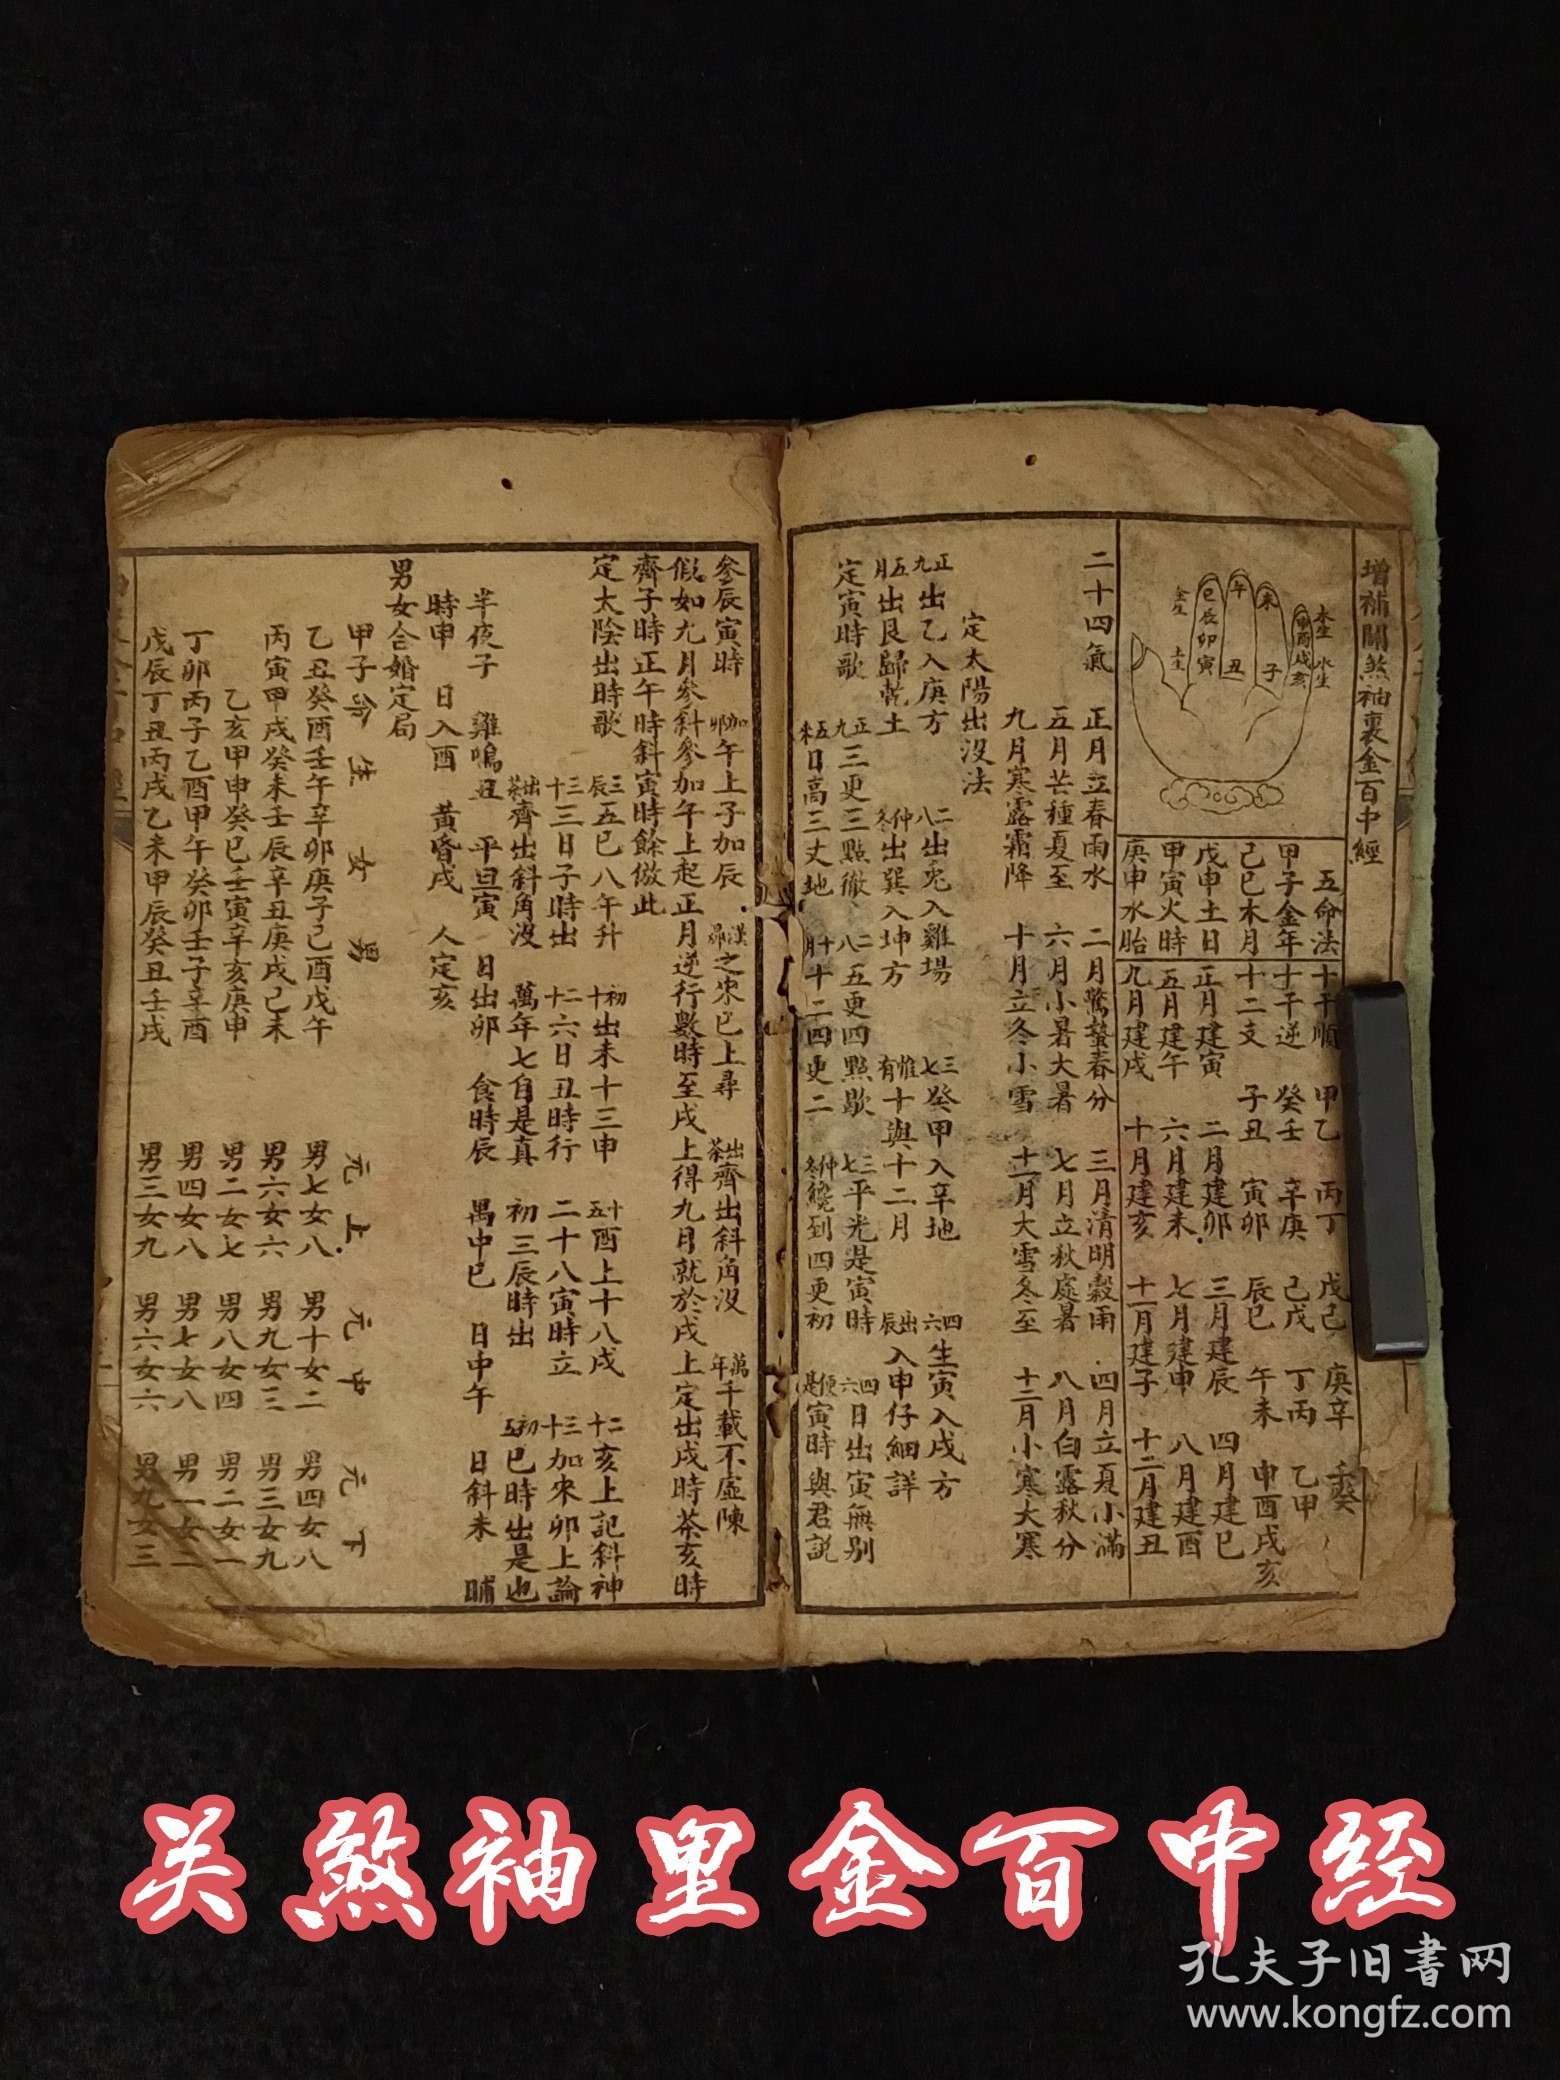 增補關煞袖裏金百中經
木生 水生
申酉戌亥
未 子
午 丑
巳辰卯寅
金生 土生
五命法
甲子金年
己巳木月
戊申土日
甲寅火時
庚申水胎
十干順 甲乙 丙丁 戊己 庚辛 壬癸
十干逆 癸壬 辛庚 己戊 丁丙 乙甲
十二支 子丑 寅卯 辰巳 午未 申酉戌亥
正月建寅 二月建卯 三月建辰 四月建巳
五月建午 六月建未 七月建申 八月建酉
九月建戌 十月建亥 十一月建子 十二月建丑
二十四氣 正月立春雨水 二月驚蟄春分 三月清明穀雨 四月立夏小滿
五月芒種夏至 六月小暑大暑 七月立秋處暑 八月白露秋分
九月寒露霜降 十月立冬小雪 十一月大雪冬至 十二月小寒大寒
定太陽出沒法
正九出乙入庚方 二八出兎入雞場 三七癸甲入辛地 四六生寅入戌方
五月出艮歸乾土 仲冬出巽入坤方 惟有十與十二月 出辰入申仔細詳
定寅時歌 正九三更三點徹 二八五更四點歇 三七平光是寅時 四六日出寅無别
五來日高三丈地 十月十二四更二 仲冬纔到四更初 便是寅時與君説
參辰寅時 加卯午上子加辰 漢尋之宋巳上尋 出茶齊出斜角沒 萬年千載不虛陳
似如九月參斜參加午上起正月逆行數時至戌上得九月就於戌上定出戌時茶亥時
齊子時正午時斜寅時餘倣此
定太陰出時歌 三辰五巳八午升 初十出未十三申 十五酉上十八戌 二十亥上記斜神
三十三日子時出 二十六日丑時行 二十八寅時立 三十加來卯上論
出茶齊出斜角沒 萬年七自是真 初三辰時出 初五巳時出是也
半夜子 雞鳴丑 平旦寅 日出卯 食時辰 禺中巳 日中午 日斜未 晡
時申 日入酉 黃昏戌 人定亥
男女合婚定局
甲子命生女男 元上 元中 元下
乙丑癸酉壬午辛卯庚子己酉戊午 男七女八 男十女二 男四女八
丙寅甲戌癸未壬辰辛丑庚戌己未 男六女六 男九女三 男三女九
乙亥甲申癸巳壬寅辛亥庚申 男二女七 男八女四 男二女一
丁卯丙子乙酉甲午癸卯壬子辛酉 男四女八 男七女八 男一女二
戊辰丁丑丙戌乙未甲辰癸丑壬戌 男三女九 男六女六 男九女三
关煞袖里金百中经
孔夫子旧书网
www.kongfz.com